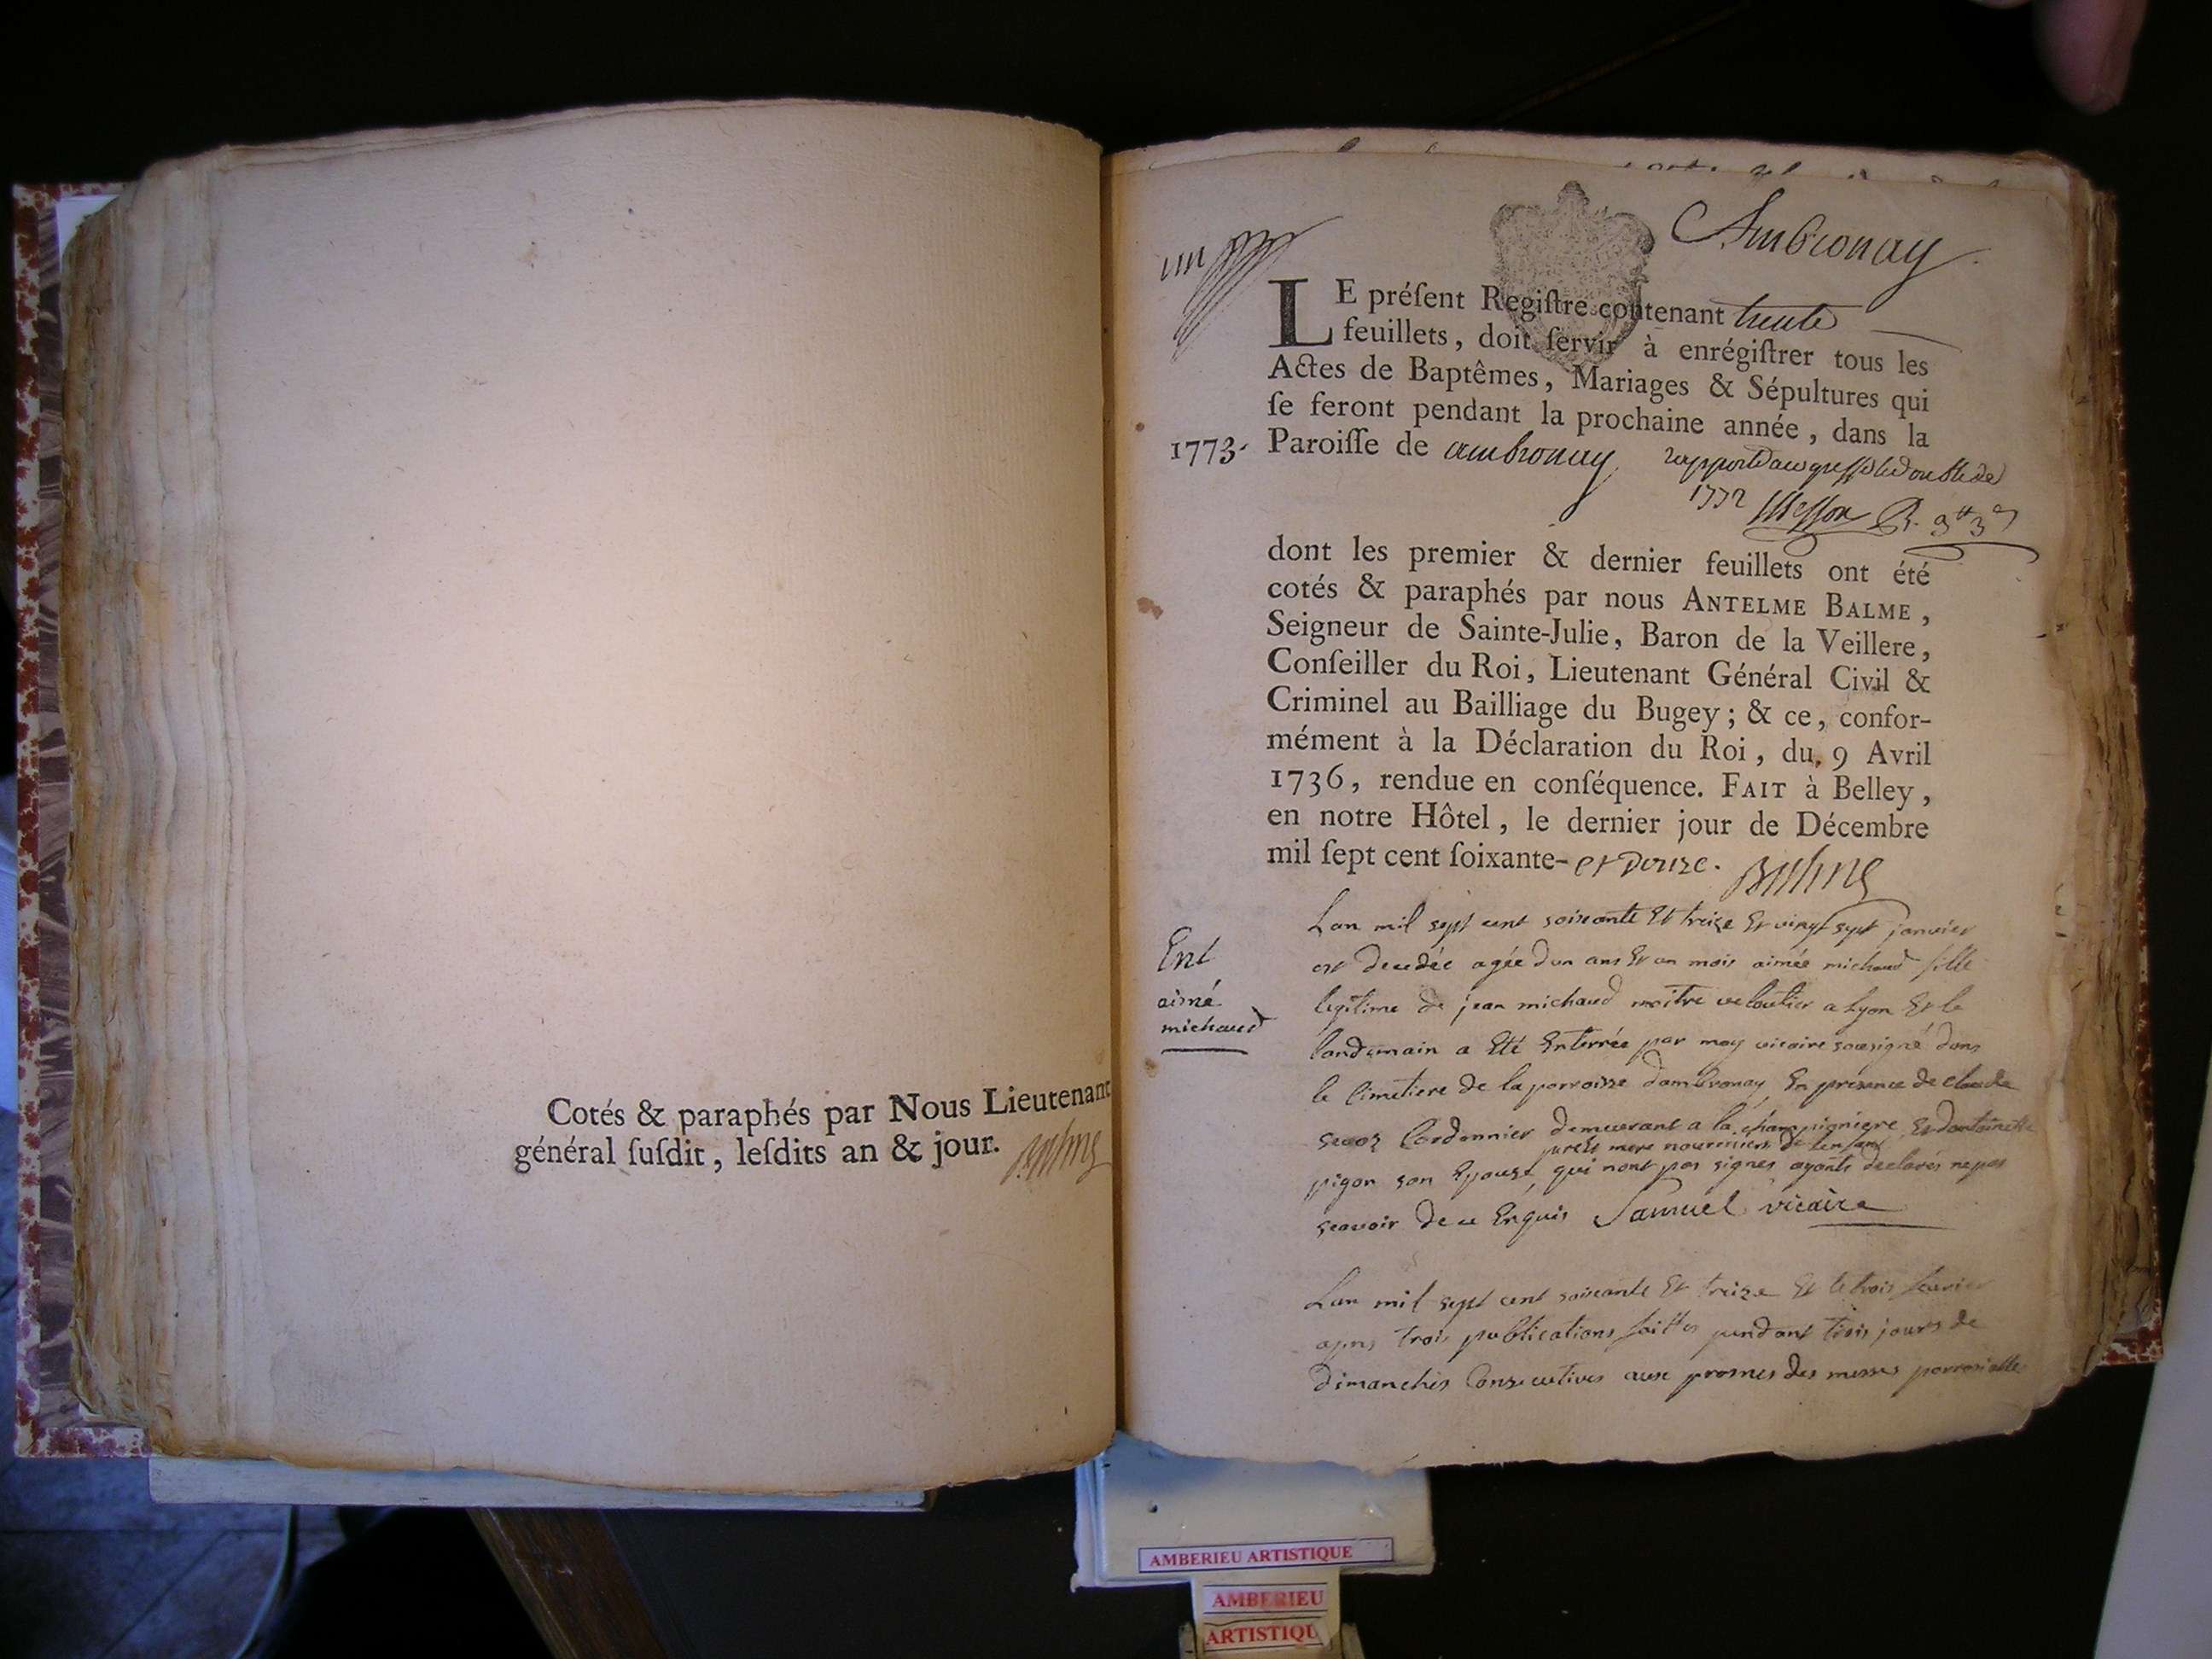 Cotés & paraphés par Nous Lieutenant
général ſuſdit, leſdits an & jour. Balme
un
Ambronay
LE préſent Regiſtre contenant trente
feuillets, doit ſervir à enrégiſtrer tous les
Actes de Baptêmes, Mariages & Sépultures qui
ſe feront pendant la prochaine année, dans la
1773. Paroiſſe de ambronay
rapporté au greffe le double de
1772
dont les premier & dernier feuillets ont été
cotés & paraphés par nous ANTELME BALME,
Seigneur de Sainte-Julie, Baron de la Veillere,
Conſeiller du Roi, Lieutenant Général Civil &
Criminel au Bailliage du Bugey; & ce, confor-
mément à la Déclaration du Roi, du 9 Avril
1736, rendue en conſéquence. FAIT à Belley,
en notre Hôtel, le dernier jour de Décembre
mil ſept cent ſoixante- et Douze. Balme
Ent
aimé
michaud
Lan mil sept cent soixante Et treize Et vingt sept janvier
est decedée agée dun ans Et un mois aimée michaud fille
legitime de jean michaud maitre veloutier a Lyon Et le
landemain a Eté Enterrée par moy vicaire sousigné dans
le Cimetiere de la parroisse dambronay En présence de claude
Cordonnier demeurant a la championiere Et dantoinette
pere Et mere nourriciers de lenfant
pigon son Epouse, qui nont pas signés ayants declarés ne pas
scavoir de ce Enquis Samuel vicaire
Lan mil sept cent soixante Et treize Et le trois fevrier
apres trois publications faittes pendant trois jours de
dimanches Consecutives aux prosnes des messes parroissialles
AMBERIEU ARTISTIQUE
AMBERIEU
ARTISTIQU